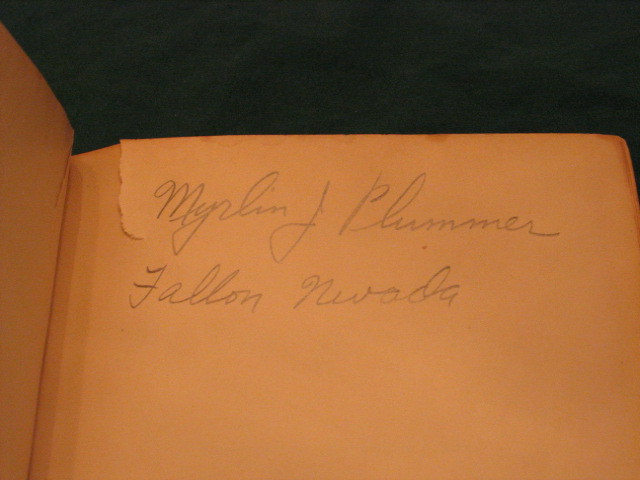 Myrlin J Plummer
Fallon Nevada